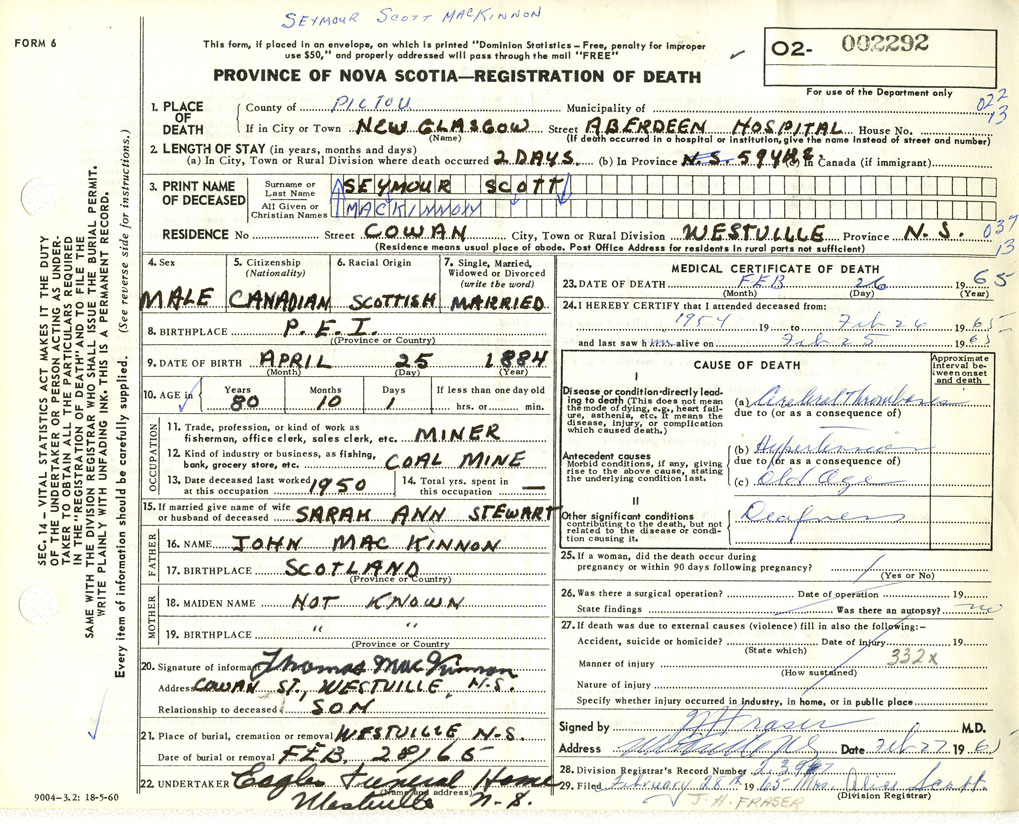 SEYMOUR SCOTT MACKINNON
FORM 6
This form, if placed in an envelope, on which is printed "Dominion Statistics—Free, penalty for improper
use $50," and properly addressed will pass through the mail "FREE"
O2- 002292
PROVINCE OF NOVA SCOTIA—REGISTRATION OF DEATH
For use of the Department only
1. PLACE OF DEATH
County of PICTOU Municipality of
022
13
If in City or Town NEW GLASGOW Street ABERDEEN HOSPITAL House No.
(Name) (If death occurred in a hospital or institution, give the name instead of street and number)
2. LENGTH OF STAY (in years, months and days)
(a) In City, Town or Rural Division where death occurred 2 DAYS. (b) In Province N.S. 59 YRS. (c) In Canada (if immigrant)
3. PRINT NAME OF DECEASED
Surname or Last Name SEYMOUR SCOTT
All Given or Christian Names MACKINNON
RESIDENCE No Street COWAN City, Town or Rural Division WESTVILLE Province N.S.
037
13
(Residence means usual place of abode. Post Office Address for residents in rural parts not sufficient)
4. Sex MALE
5. Citizenship (Nationality) CANADIAN
6. Racial Origin SCOTTISH
7. Single, Married, Widowed or Divorced (write the word) MARRIED
8. BIRTHPLACE P.E.I.
(Province or Country)
9. DATE OF BIRTH APRIL 25 1884
(Month) (Day) (Year)
10. AGE in Years 80 Months 10 Days 1 If less than one day old hrs. or min.
OCCUPATION
11. Trade, profession, or kind of work as
fisherman, office clerk, sales clerk, etc. MINER
12. Kind of industry or business, as fishing,
bank, grocery store, etc. COAL MINE
13. Date deceased last worked at this occupation 1950
14. Total yrs. spent in this occupation —
15. If married give name of wife
or husband of deceased SARAH ANN STEWART
FATHER
16. NAME JOHN MAC KINNON
17. BIRTHPLACE SCOTLAND
(Province or Country)
MOTHER
18. MAIDEN NAME NOT KNOWN
19. BIRTHPLACE " "
(Province or Country)
20. Signature of informant Thomas MacKinnon
Address COWAN ST., WESTVILLE, N.S.
Relationship to deceased SON
21. Place of burial, cremation or removal WESTVILLE N.S.
Date of burial or removal FEB. 28/65
22. UNDERTAKER Eagles Funeral Home
(Name and address)
Westville N.S.
9004-3.2: 18-5-60
MEDICAL CERTIFICATE OF DEATH
23. DATE OF DEATH FEB 26 1965
(Month) (Day) (Year)
24. I HEREBY CERTIFY that I attended deceased from:
1954 19 to Feb 26 1965
and last saw him alive on Feb 25 1965
CAUSE OF DEATH
Approximate interval between onset and death
I
Disease or condition directly leading to death (This does not mean the mode of dying, e.g., heart failure, asthenia, etc. It means the disease, injury, or complication which caused death.)
(a) Cerebral Thrombosis
due to (or as a consequence of)
Antecedent causes
Morbid conditions, if any, giving rise to the above cause, stating the underlying condition last.
(b) Hypertension
due to (or as a consequence of)
(c) Old Age
II
Other significant conditions
contributing to the death, but not related to the disease or condition causing it.
Deafness
25. If a woman, did the death occur during
pregnancy or within 90 days following pregnancy?
(Yes or No)
26. Was there a surgical operation? Date of operation 19
State findings Was there an autopsy? no
27. If death was due to external causes (violence) fill in also the following:—
Accident, suicide or homicide? Date of injury 19
(State which)
332x
Manner of injury
(How sustained)
Nature of injury
Specify whether injury occurred in industry, in home, or in public place
Signed by J H Fraser M.D.
Address Date Feb 27 1965
28. Division Registrar's Record Number
29. Filed February 28th 1965 Mrs. Alice Scott
(Division Registrar)
J. H. FRASER
SEC. 14—VITAL STATISTICS ACT MAKES IT THE DUTY
OF THE UNDERTAKER OR PERSON ACTING AS UNDER-
TAKER TO OBTAIN ALL THE PARTICULARS REQUIRED
IN THE "REGISTRATION OF DEATH" AND TO FILE THE
SAME WITH THE DIVISION REGISTRAR WHO SHALL ISSUE THE BURIAL PERMIT.
WRITE PLAINLY WITH UNFADING INK. THIS IS A PERMANENT RECORD.
Every item of information should be carefully supplied. (See reverse side for instructions.)